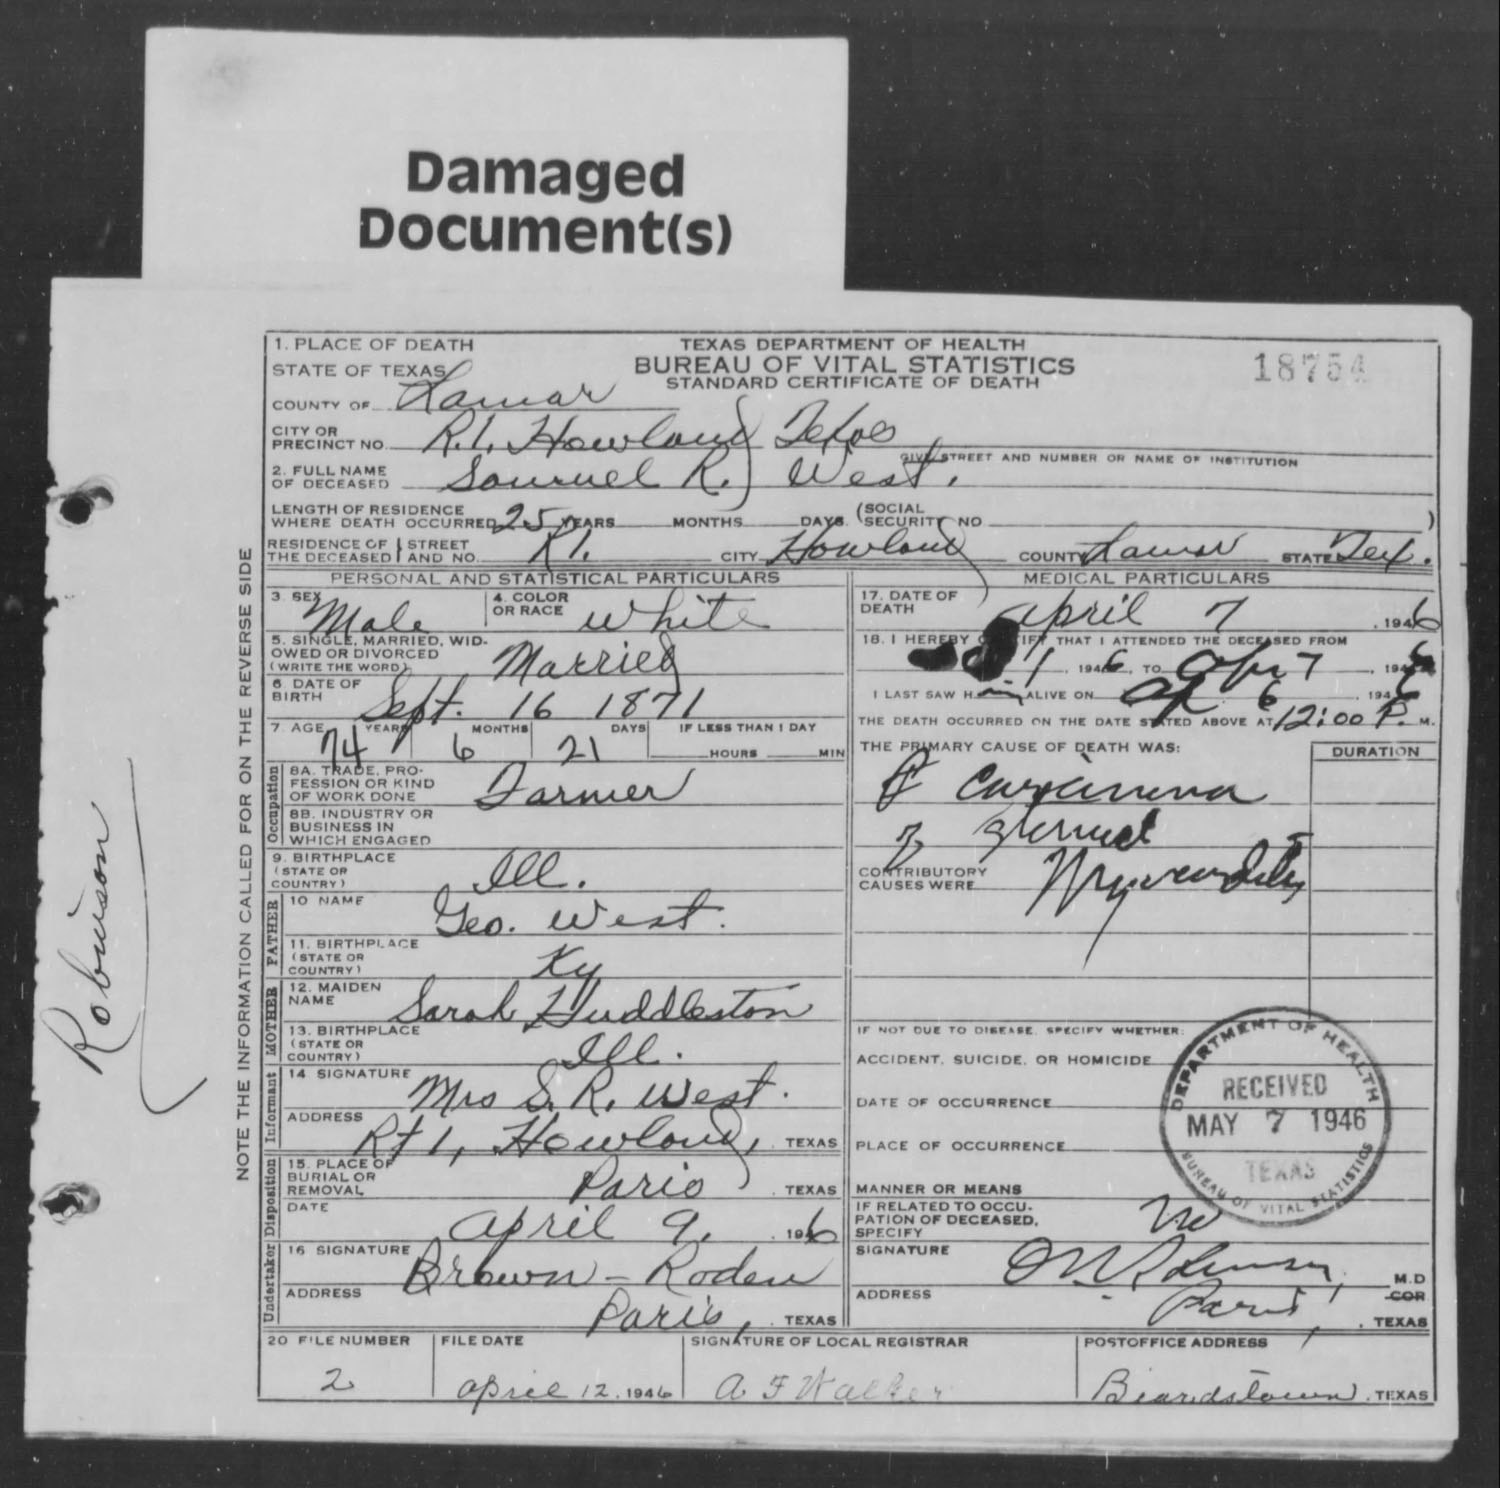 Damaged
Document(s)
1. PLACE OF DEATH
STATE OF TEXAS
COUNTY OF Lamar
TEXAS DEPARTMENT OF HEALTH
BUREAU OF VITAL STATISTICS
STANDARD CERTIFICATE OF DEATH
18754
CITY OR
PRECINCT NO. R.1. Howland Texas
GIVE STREET AND NUMBER OR NAME OF INSTITUTION
2. FULL NAME
OF DECEASED Samuel R. West.
LENGTH OF RESIDENCE
WHERE DEATH OCCURRED 25 YEARS MONTHS DAYS (SOCIAL SECURITY NO )
RESIDENCE OF THE DECEASED STREET AND NO. R1. CITY Howland COUNTY Lamar STATE Tex.
PERSONAL AND STATISTICAL PARTICULARS
3. SEX Male
4. COLOR OR RACE White
5. SINGLE, MARRIED, WID-
OWED OR DIVORCED
(WRITE THE WORD) Married
6. DATE OF
BIRTH Sept. 16 1871
7. AGE 74 YEARS 6 MONTHS 21 DAYS IF LESS THAN 1 DAY HOURS MIN
Occupation
8A. TRADE, PRO-
FESSION OR KIND
OF WORK DONE Farmer
8B. INDUSTRY OR
BUSINESS IN
WHICH ENGAGED
9. BIRTHPLACE
(STATE OR
COUNTRY) Ill.
FATHER
10 NAME Geo. West.
11. BIRTHPLACE
(STATE OR
COUNTRY) Ky
MOTHER
12. MAIDEN
NAME Sarah Huddleston
13. BIRTHPLACE
(STATE OR
COUNTRY) Ill.
Informant
14 SIGNATURE Mrs S. R. West.
ADDRESS Rt 1, Howland, TEXAS
Disposition
15. PLACE OF
BURIAL OR
REMOVAL Paris TEXAS
DATE April 9, 1946
Undertaker
16 SIGNATURE Brown-Roden
ADDRESS Paris, TEXAS
MEDICAL PARTICULARS
17. DATE OF
DEATH April 7 1946
18. I HEREBY THAT I ATTENDED THE DECEASED FROM
1 1946 TO Apr 7 1946
I LAST SAW H im ALIVE ON Ap 6 1946
THE DEATH OCCURRED ON THE DATE STATED ABOVE AT 12:00 P. M.
THE PRIMARY CAUSE OF DEATH WAS:
DURATION
CONTRIBUTORY
CAUSES WERE
IF NOT DUE TO DISEASE, SPECIFY WHETHER:
ACCIDENT, SUICIDE, OR HOMICIDE
DATE OF OCCURRENCE
PLACE OF OCCURRENCE
MANNER OR MEANS
IF RELATED TO OCCU-
PATION OF DECEASED,
SPECIFY No
SIGNATURE M.D
COR
ADDRESS Paris, TEXAS
DEPARTMENT OF HEALTH
RECEIVED
MAY 7 1946
TEXAS
BUREAU OF VITAL STATISTICS
20 FILE NUMBER 2
FILE DATE April 12, 1946
SIGNATURE OF LOCAL REGISTRAR A F Walker
POSTOFFICE ADDRESS TEXAS
NOTE THE INFORMATION CALLED FOR ON THE REVERSE SIDE
Robinson